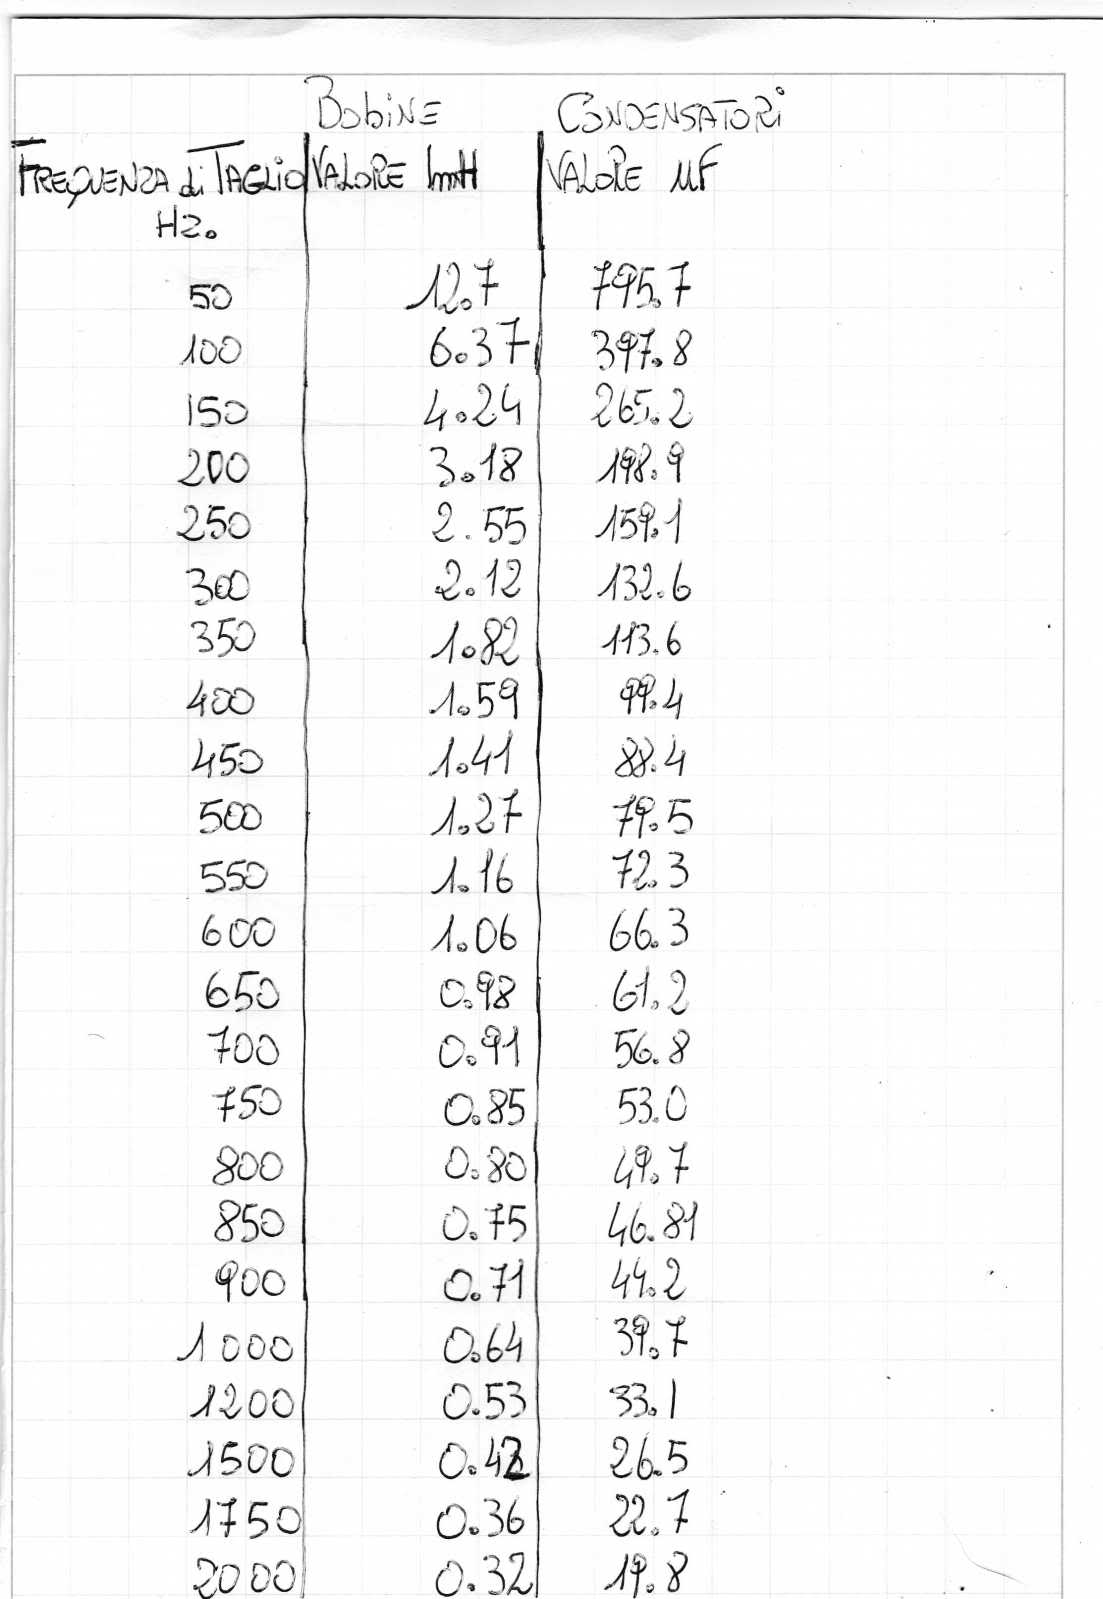 Bobine CONDENSATORI
FREQUENZA di TAGLIO VALORE mH VALORE µF
HZ.
50 12.7 795.7
100 6.37 397.8
150 4.24 265.2
200 3.18 198.9
250 2.55 159.1
300 2.12 132.6
350 1.82 113.6
400 1.59 99.4
450 1.41 88.4
500 1.27 79.5
550 1.16 72.3
600 1.06 66.3
650 0.98 61.2
700 0.91 56.8
750 0.85 53.0
800 0.80 49.7
850 0.75 46.81
900 0.71 44.2
1000 0.64 39.7
1200 0.53 33.1
1500 0.42 26.5
1750 0.36 22.7
2000 0.32 19.8